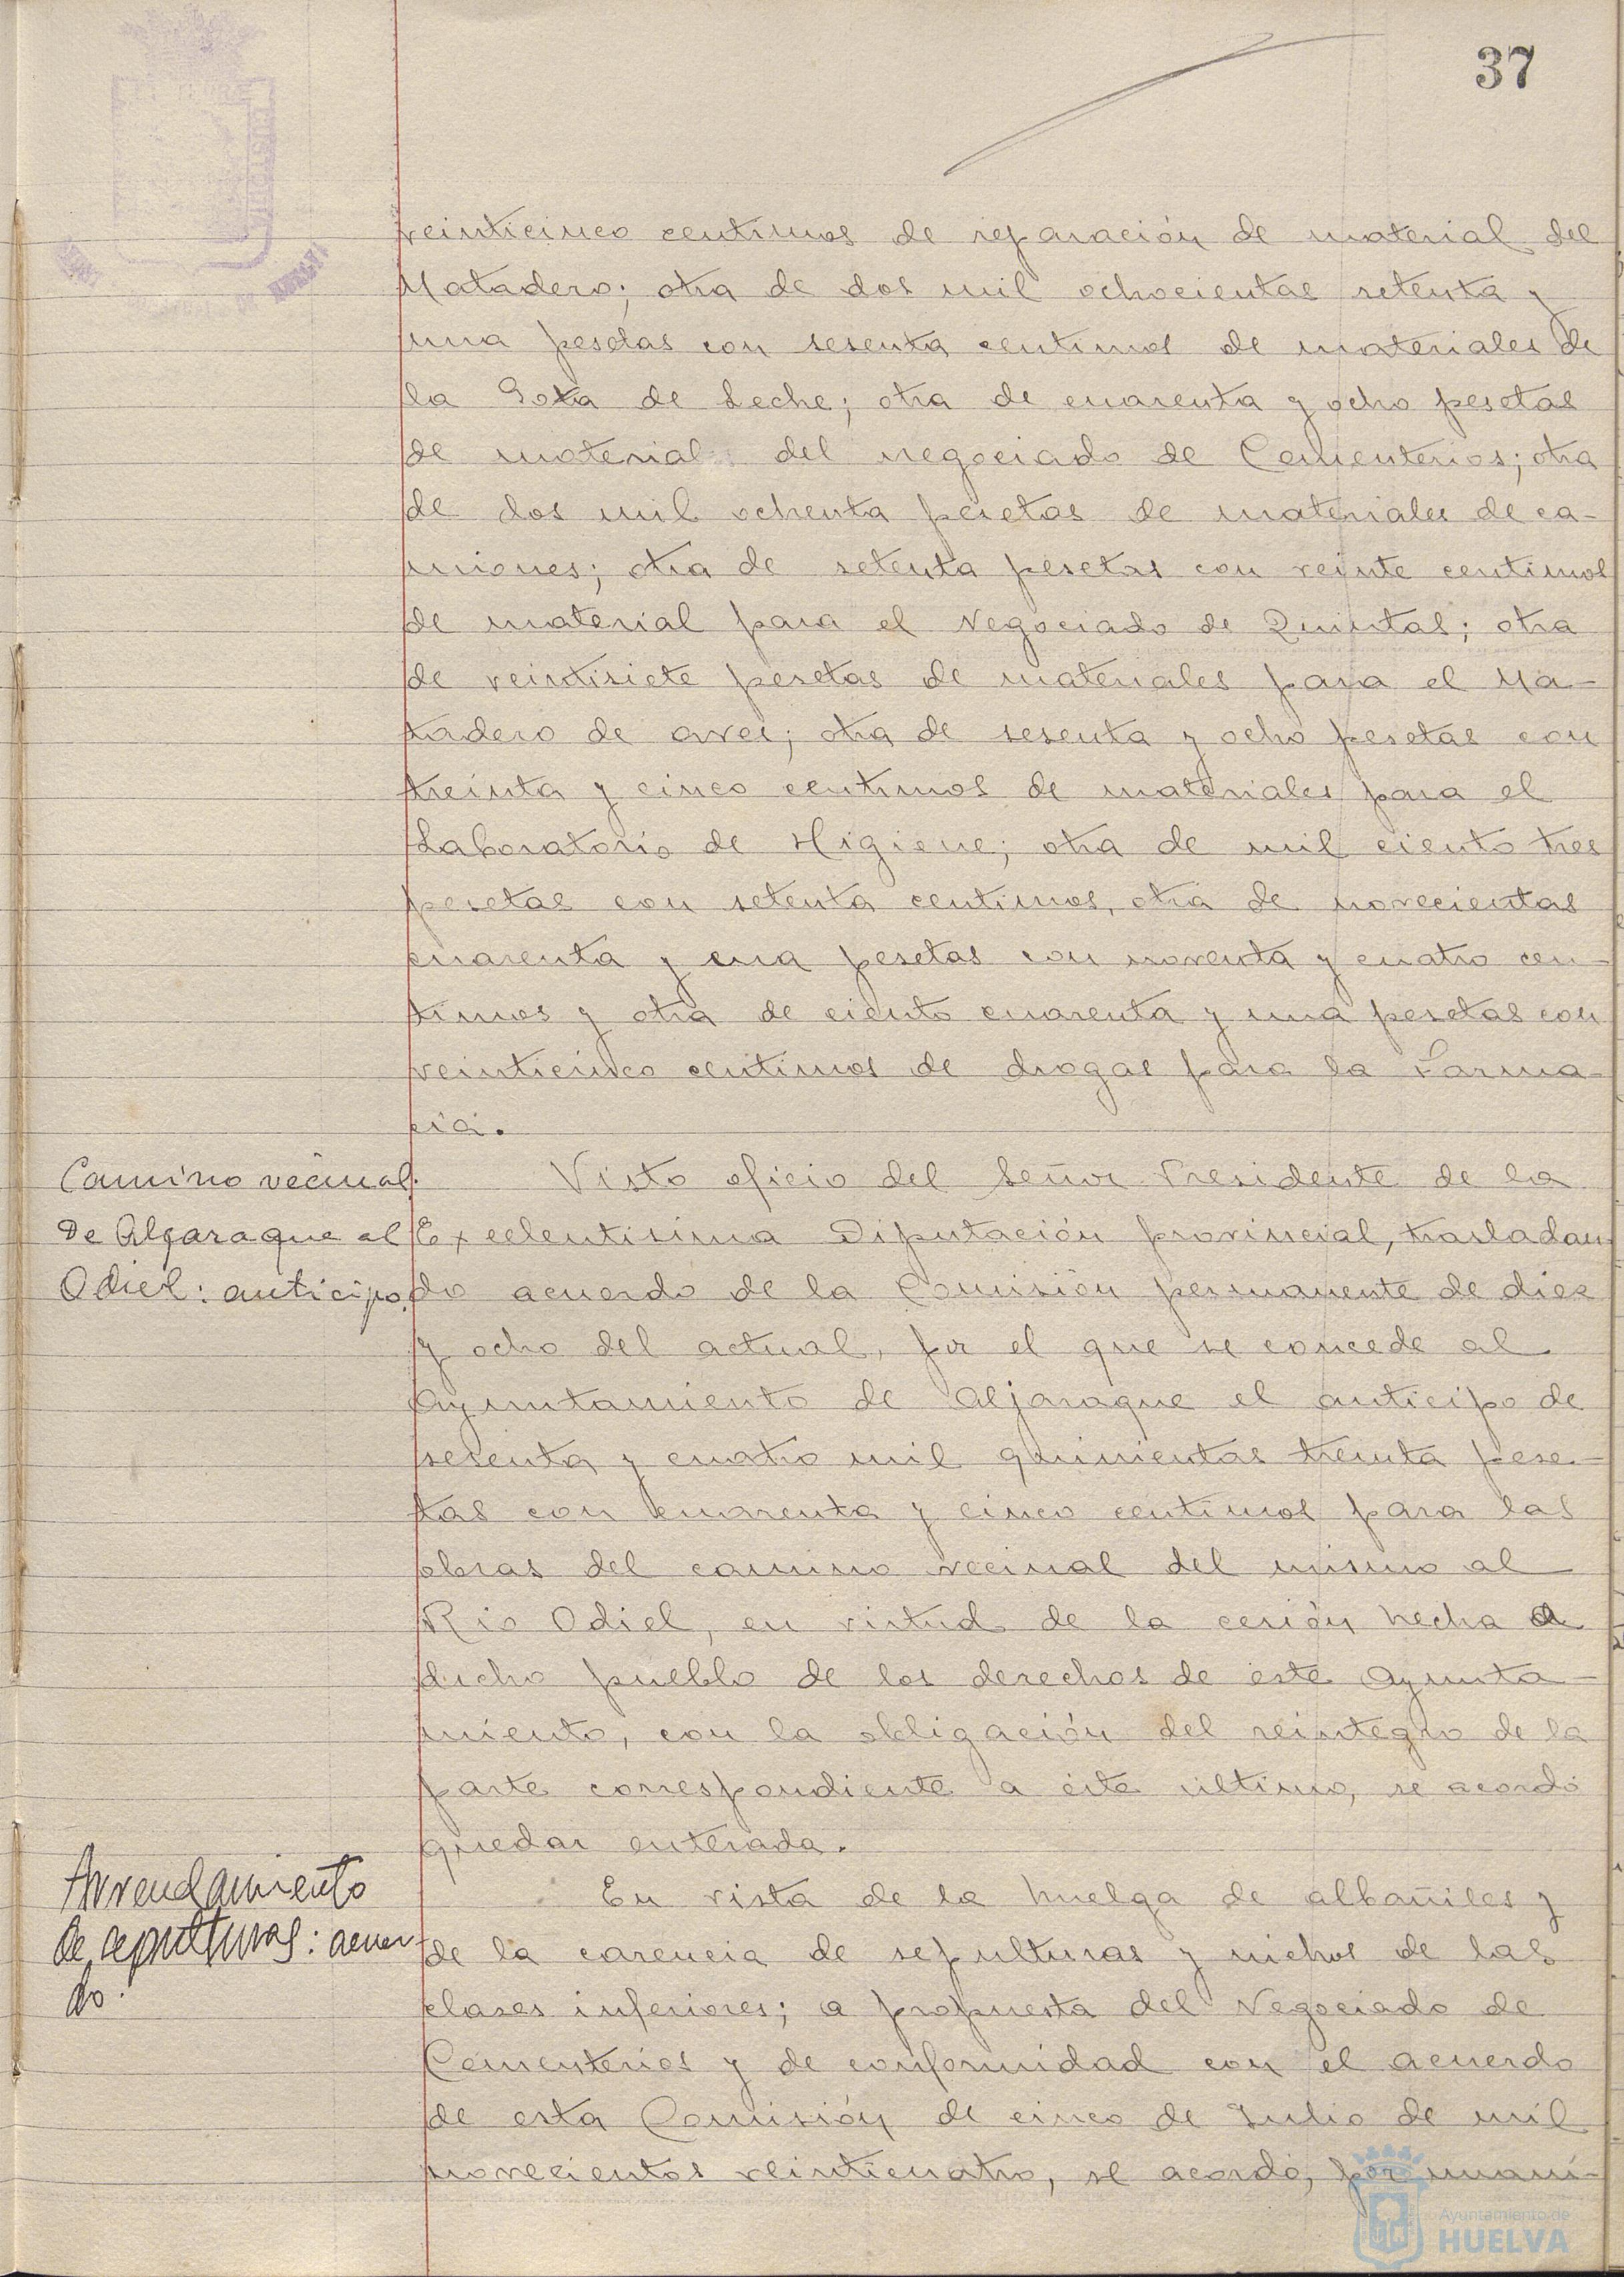 37
veinticinco centimos de reparación de material del
Matadero; otra de dos mil ochocientas setenta y
una pesetas con sesenta centimos de materiales de
la Gota de Leche; otra de cuarenta y ocho pesetas
de material del negociado de Cementerios; otra
de dos mil ochenta pesetas de materiales de ca-
miones; otra de setenta pesetas con veinte centimos
de material para el Negociado de Quintas; otra
de veintisiete pesetas de materiales para el Ma-
tadero de aves; otra de sesenta y ocho pesetas con
treinta y cinco centimos de materiales para el
Laboratorio de Higiene; otra de mil ciento tres
pesetas con setenta centimos, otra de novecientas
cuarenta y una pesetas con noventa y cuatro cen-
timos y otra de ciento cuarenta y una pesetas con
veinticinco centimos de drogas para la Farma-
cia.
Camino vecinal
De Aljaraque al
Odiel: anticipo.
Visto oficio del Señor Presidente de la
Excelentisima Diputación provincial, trasladan-
do acuerdo de la Comisión permanente de diez
y ocho del actual, por el que se concede al
Ayuntamiento de Aljaraque el anticipo de
sesenta y cuatro mil quinientas treinta pese-
tas con cuarenta y cinco centimos para las
obras del camino vecinal del mismo al
Rio Odiel, en virtud de la cesión hecha a
dicho pueblo de los derechos de este Ayunta-
miento, con la obligación del reintegro de la
parte correspondiente a éste ultimo, se acordó
quedar enterada.
Arrendamiento
de sepulturas: acuer-
do.
En vista de la huelga de albañiles y
de la carencia de sepulturas y nichos de las
clases inferiores; a propuesta del Negociado de
Cementerios y de conformidad con el acuerdo
de esta Comisión de cinco de Julio de mil
novecientos veinticuatro, se acordó, por unani-
Ayuntamiento de
HUELVA